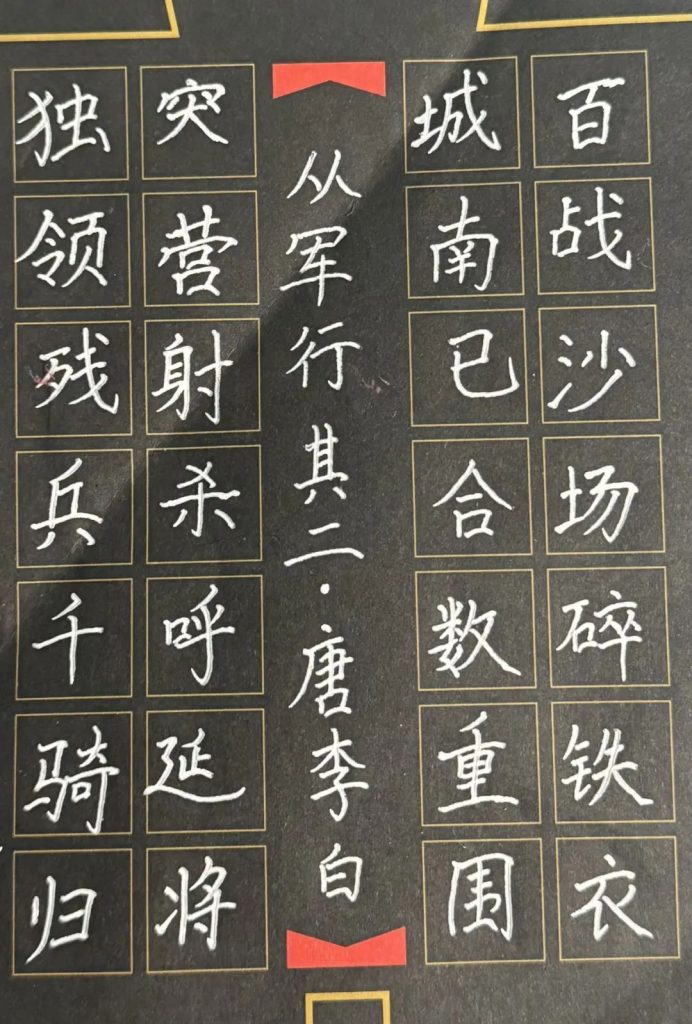 百战沙场碎铁衣
城南已合数重围
从军行 其二·唐李白
突营射杀呼延将
独领残兵千骑归